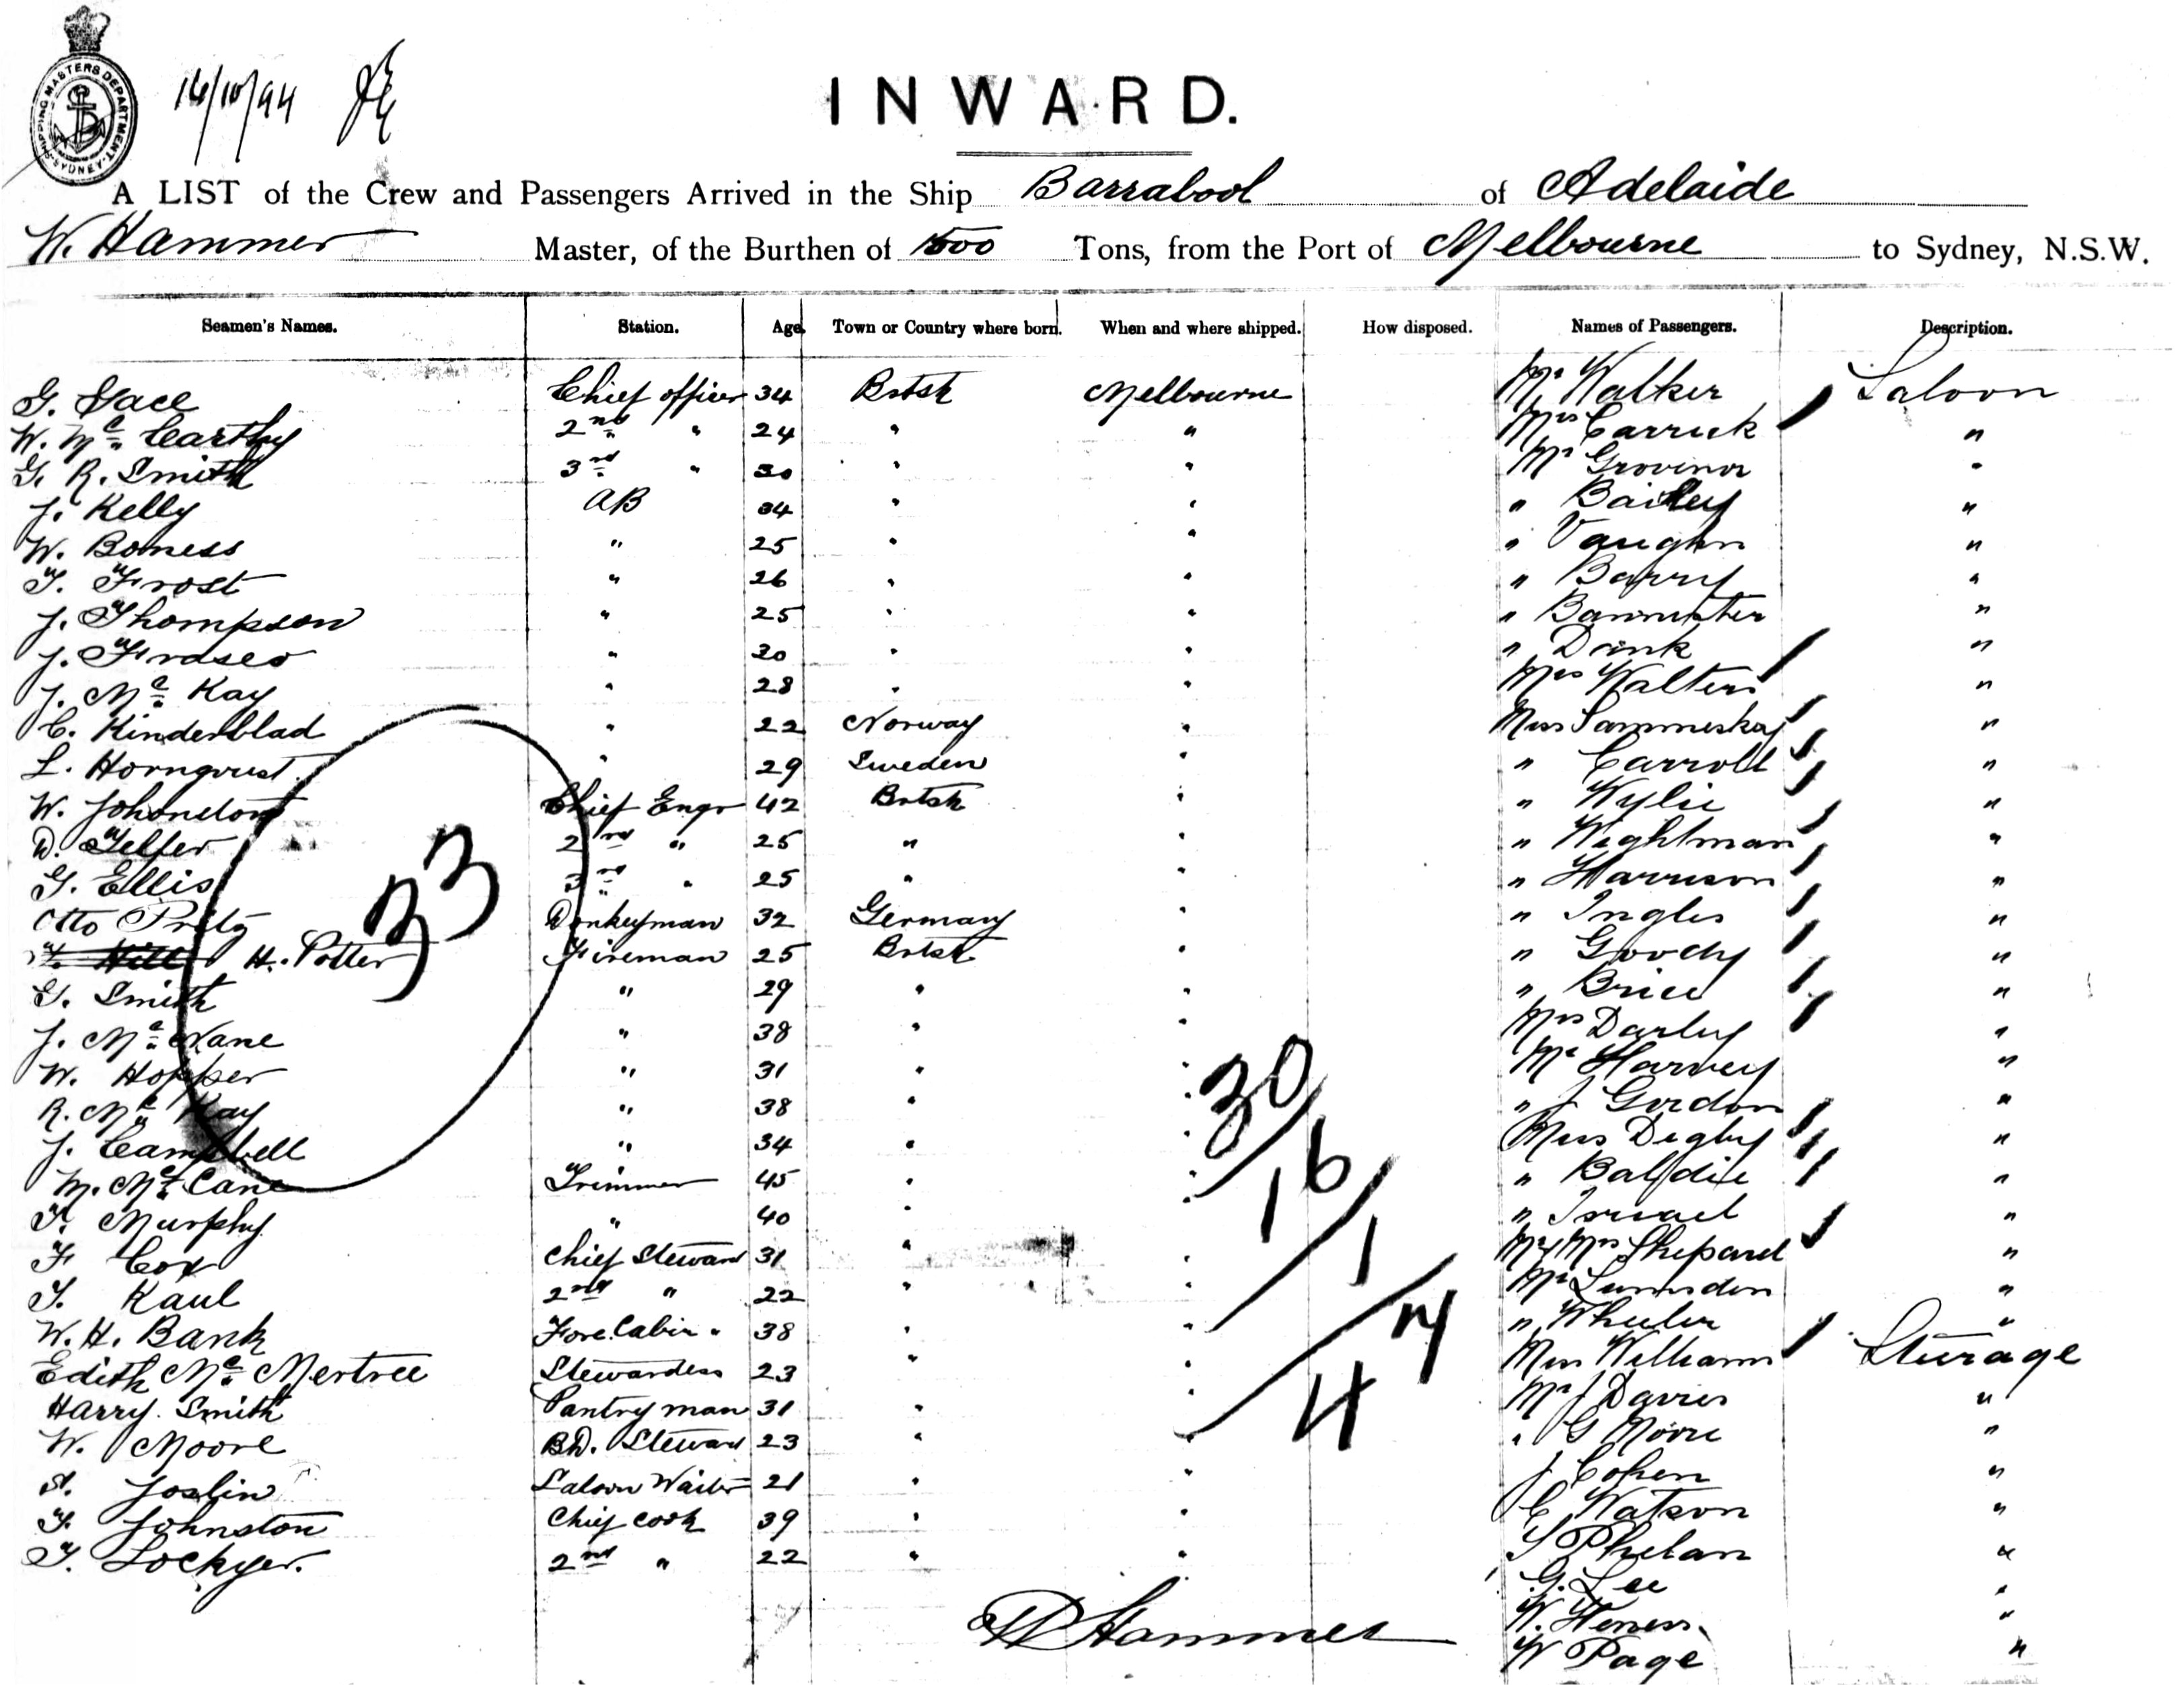 SHIPPING MASTERS DEPARTMENT SYDNEY
16/10/94
INWARD.
A LIST of the Crew and Passengers Arrived in the Ship Barrabool of Adelaide
W. Hammer Master, of the Burthen of 1500 Tons, from the Port of Melbourne to Sydney, N.S.W.
Seamen's Names. Station. Age. Town or Country where born. When and where shipped. How disposed. Names of Passengers. Description.
Chief officer 34 Brtsh Melbourne Mr Walker Saloon
W. Mc Carthy 2nd " 24 " " Mrs Carrick "
G. R. Smith 3rd " 30 " " Mr Grovenor "
J. Kelly AB 34 " " " Bailey "
W. Boness " 25 " " " Vaughn "
T. Frost " 26 " " " Barry "
J. Thompson " 25 " " " Bannister "
J. Fraser " 20 " " " Drink "
J. Mc Kay " 28 " " Mrs Walters "
C. Kinderblad " 22 Norway " Miss "
L. Hornqvist " 29 Sweden " " Carroll "
W. Johnston Chief Engr 42 Brtsh " " Wylie "
D. Telfer 2nd " 25 " " " Wightman "
G. Ellis 3rd " 25 " " " Harrison "
Otto Donkeyman 32 Germany " " Ingles "
T. Hill H. Potter Fireman 25 Brtsh " " Goody "
G. Smith " 29 " " " Brice "
J. Mc Nane " 38 " " Mrs Darley "
W. Hopper " 31 " " Mr Harvey "
R. Mc Kay " 38 " " " J Gordon "
J. Campbell " 34 " " Miss Digby "
M. Mc Cane Trimmer 45 " " " Baldie "
T. Murphy " 40 " " " Israel "
F. Cox Chief Steward 31 " " Mr & Mrs Shepard "
T. Kaul 2nd " 22 " " Mr Lumsden "
W. H. Bank Fore Cabin " 38 " " " Wheeler "
Edith Mc Mertree Stewardess 23 " " Miss Williams Sturage
Harry Smith Pantry man 31 " " Mr J Davies "
W. Moore BD. Steward 23 " " " G Moore "
Joslin Saloon Waiter 21 " " J Cohen "
T. Johnston Chief Cook 39 " " C Watson "
T. Lockyer. 2nd " 22 " " S Phelan "
G. Lee "
W. "
W Page "
33
30/16/1/4
W Hammer